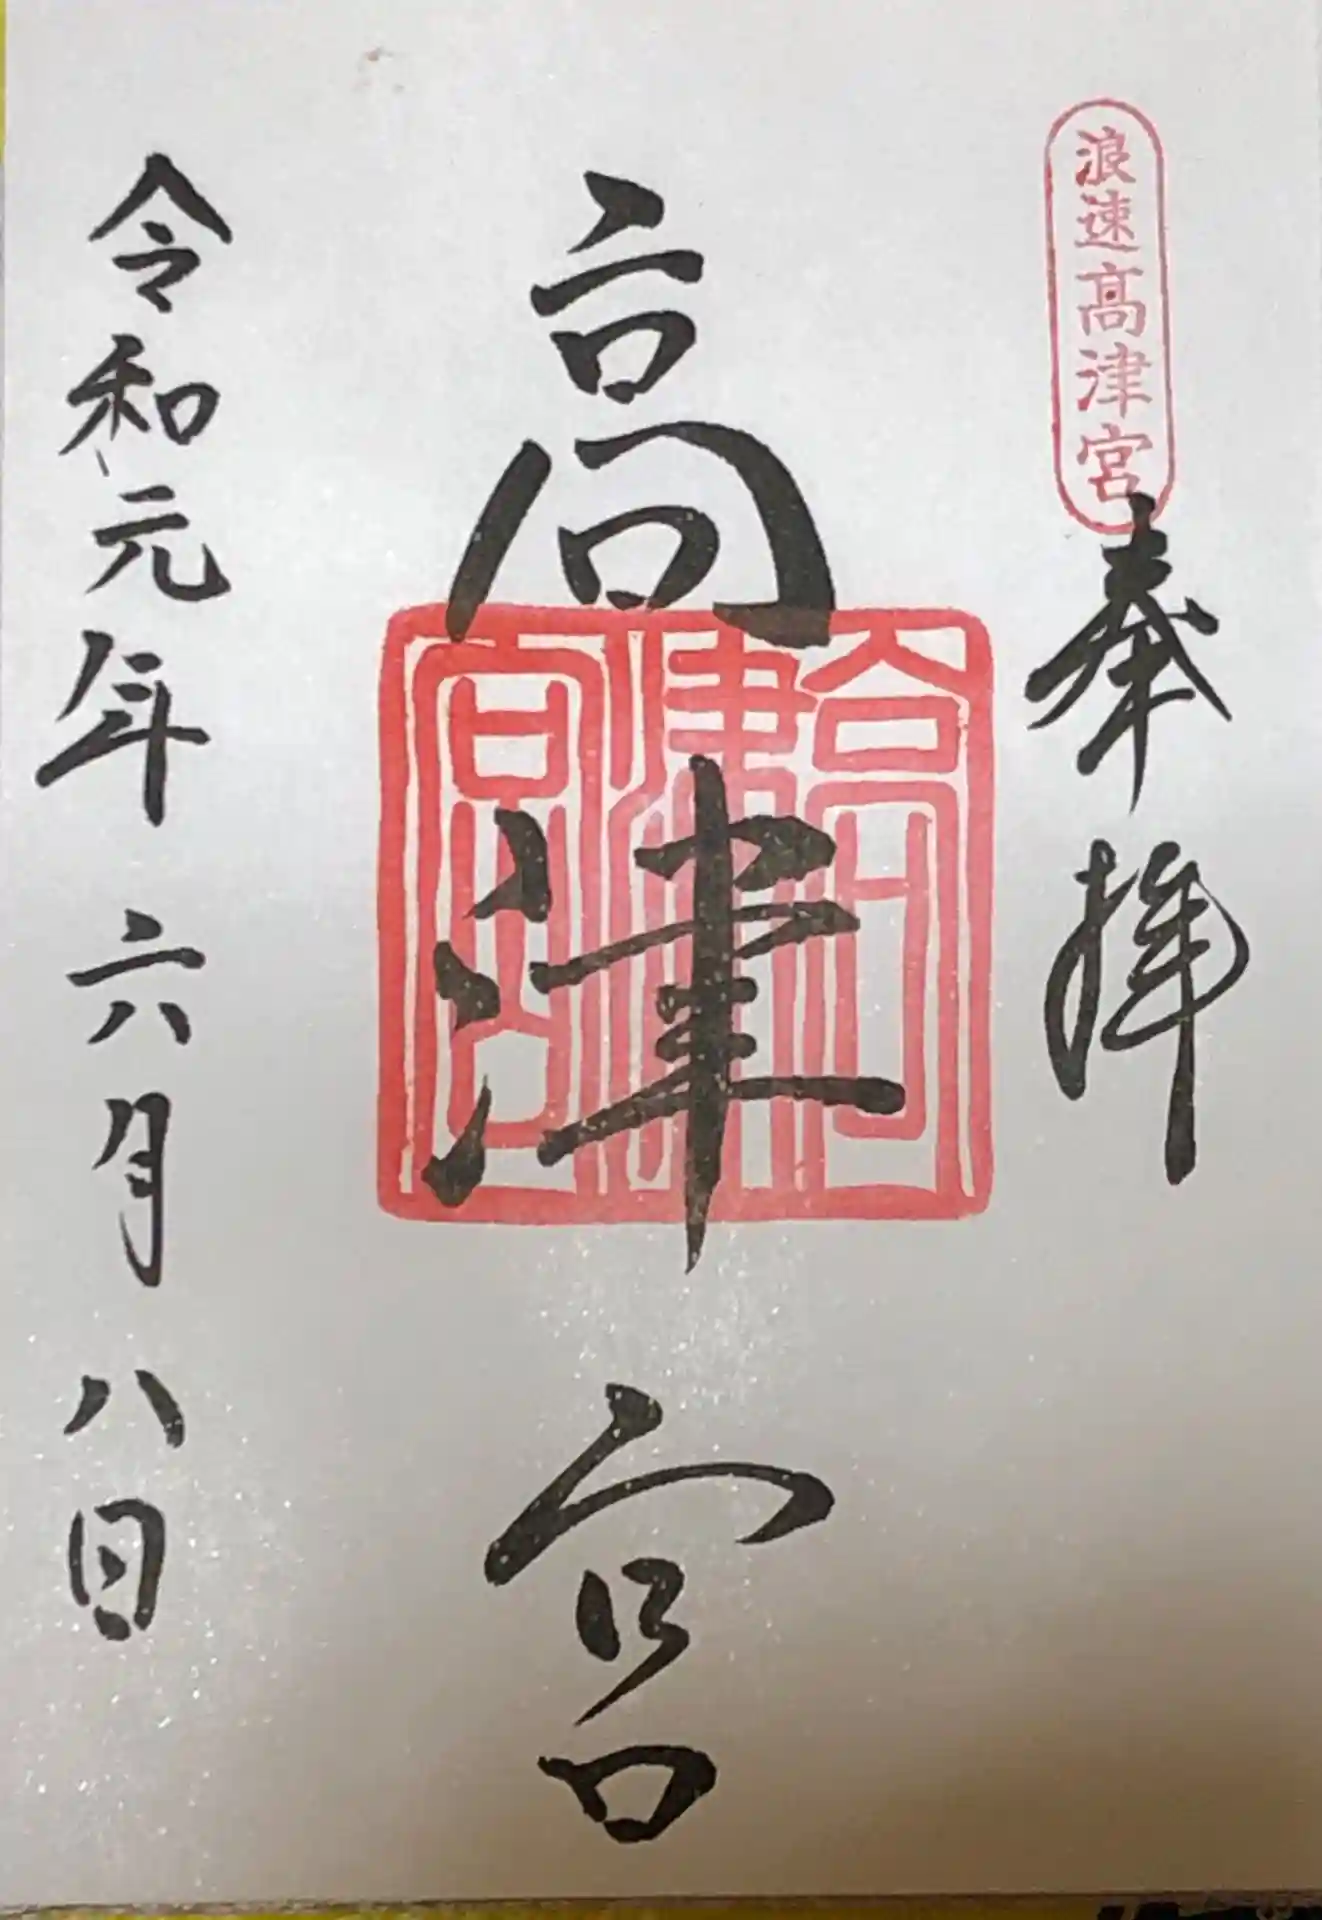 浪速高津宮
奉拝
高津宮
高津宮
令和元年六月八日